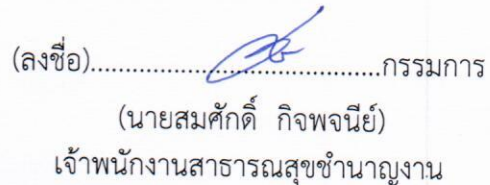 (ลงชื่อ)....................................กรรมการ
(นายสมศักดิ์ กิจพจนีย์)
เจ้าพนักงานสาธารณสุขชำนาญงาน